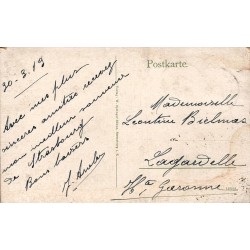 30-3-19
Avec mes plus
sincères amitiés recevez
mon meilleur souvenir
de Strasbourg
Bons baisers
Postkarte.
Mademoiselle
Léontine
Lagardelle
Hte Garonne